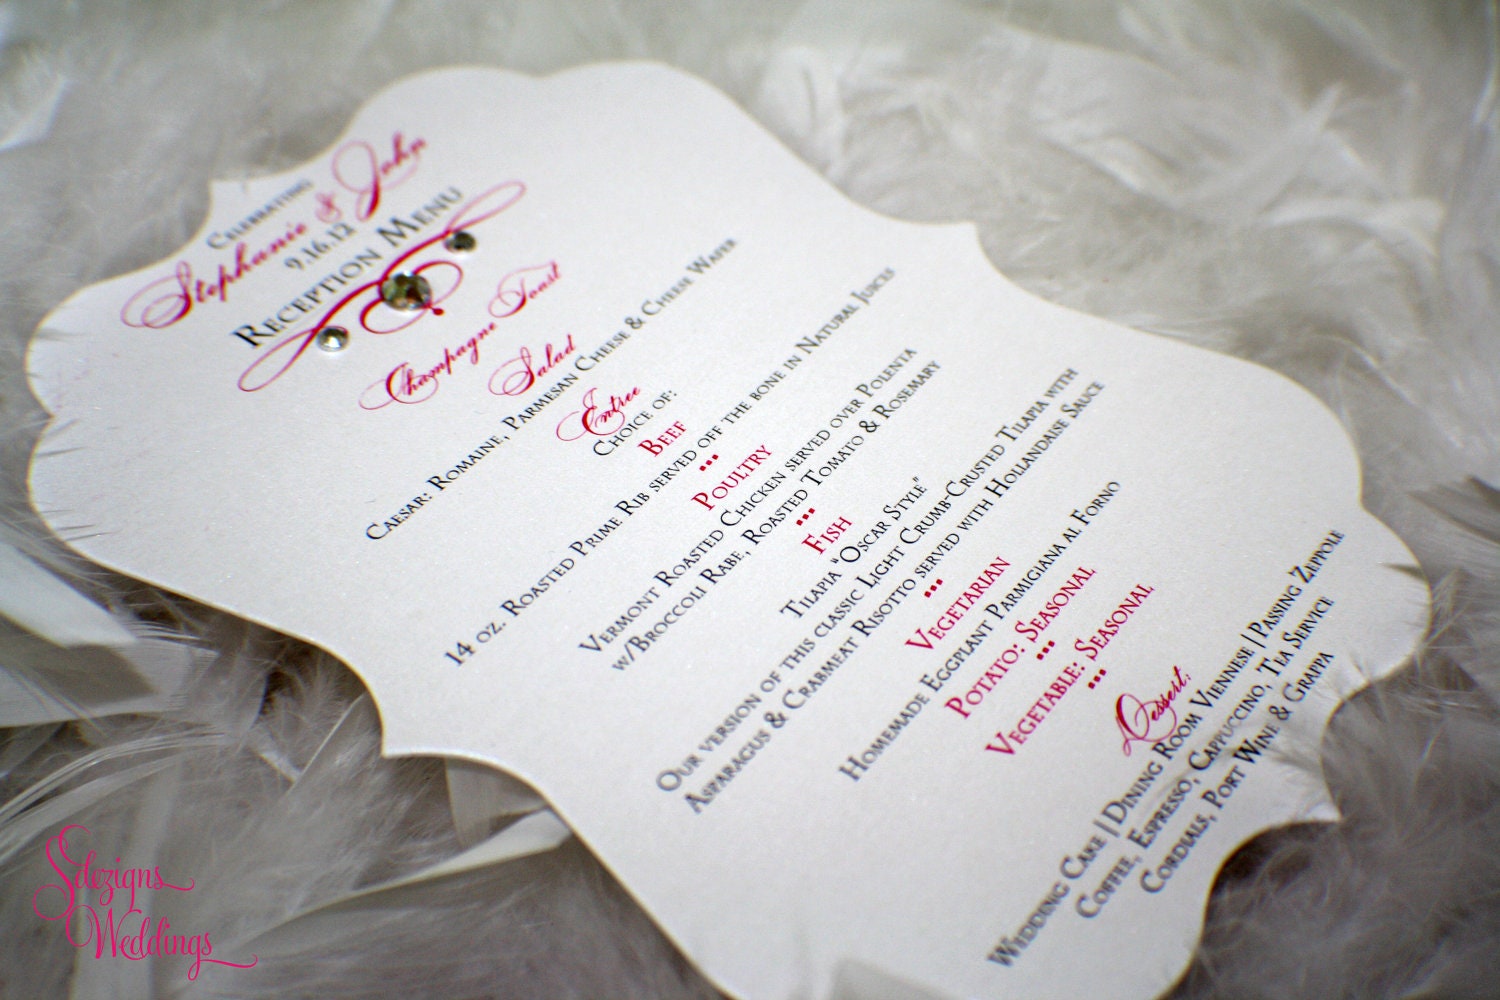 Celebrating
Stephanie & John
9.16.12
Reception Menu
Champagne Toast
Salad
Caesar: Romaine, Parmesan Cheese & Cheese Wafer
Entree
Choice of:
Beef
14 oz. Roasted Prime Rib served off the bone in Natural Juices
...
Poultry
Vermont Roasted Chicken served over Polenta
w/Broccoli Rabe, Roasted Tomato & Rosemary
...
Fish
Tilapia "Oscar Style"
Our version of this classic Light Crumb-Crusted Tilapia with
Asparagus & Crabmeat Risotto served with Hollandaise Sauce
...
Vegetarian
Homemade Eggplant Parmigiana al Forno
Potato: Seasonal
...
Vegetable: Seasonal
...
Dessert:
Wedding Cake | Dining Room Viennese | Passing Zeppole
Coffee, Espresso, Cappuccino, Tea Service
Cordials, Port Wine & Grappa
Sdezigns
Weddings